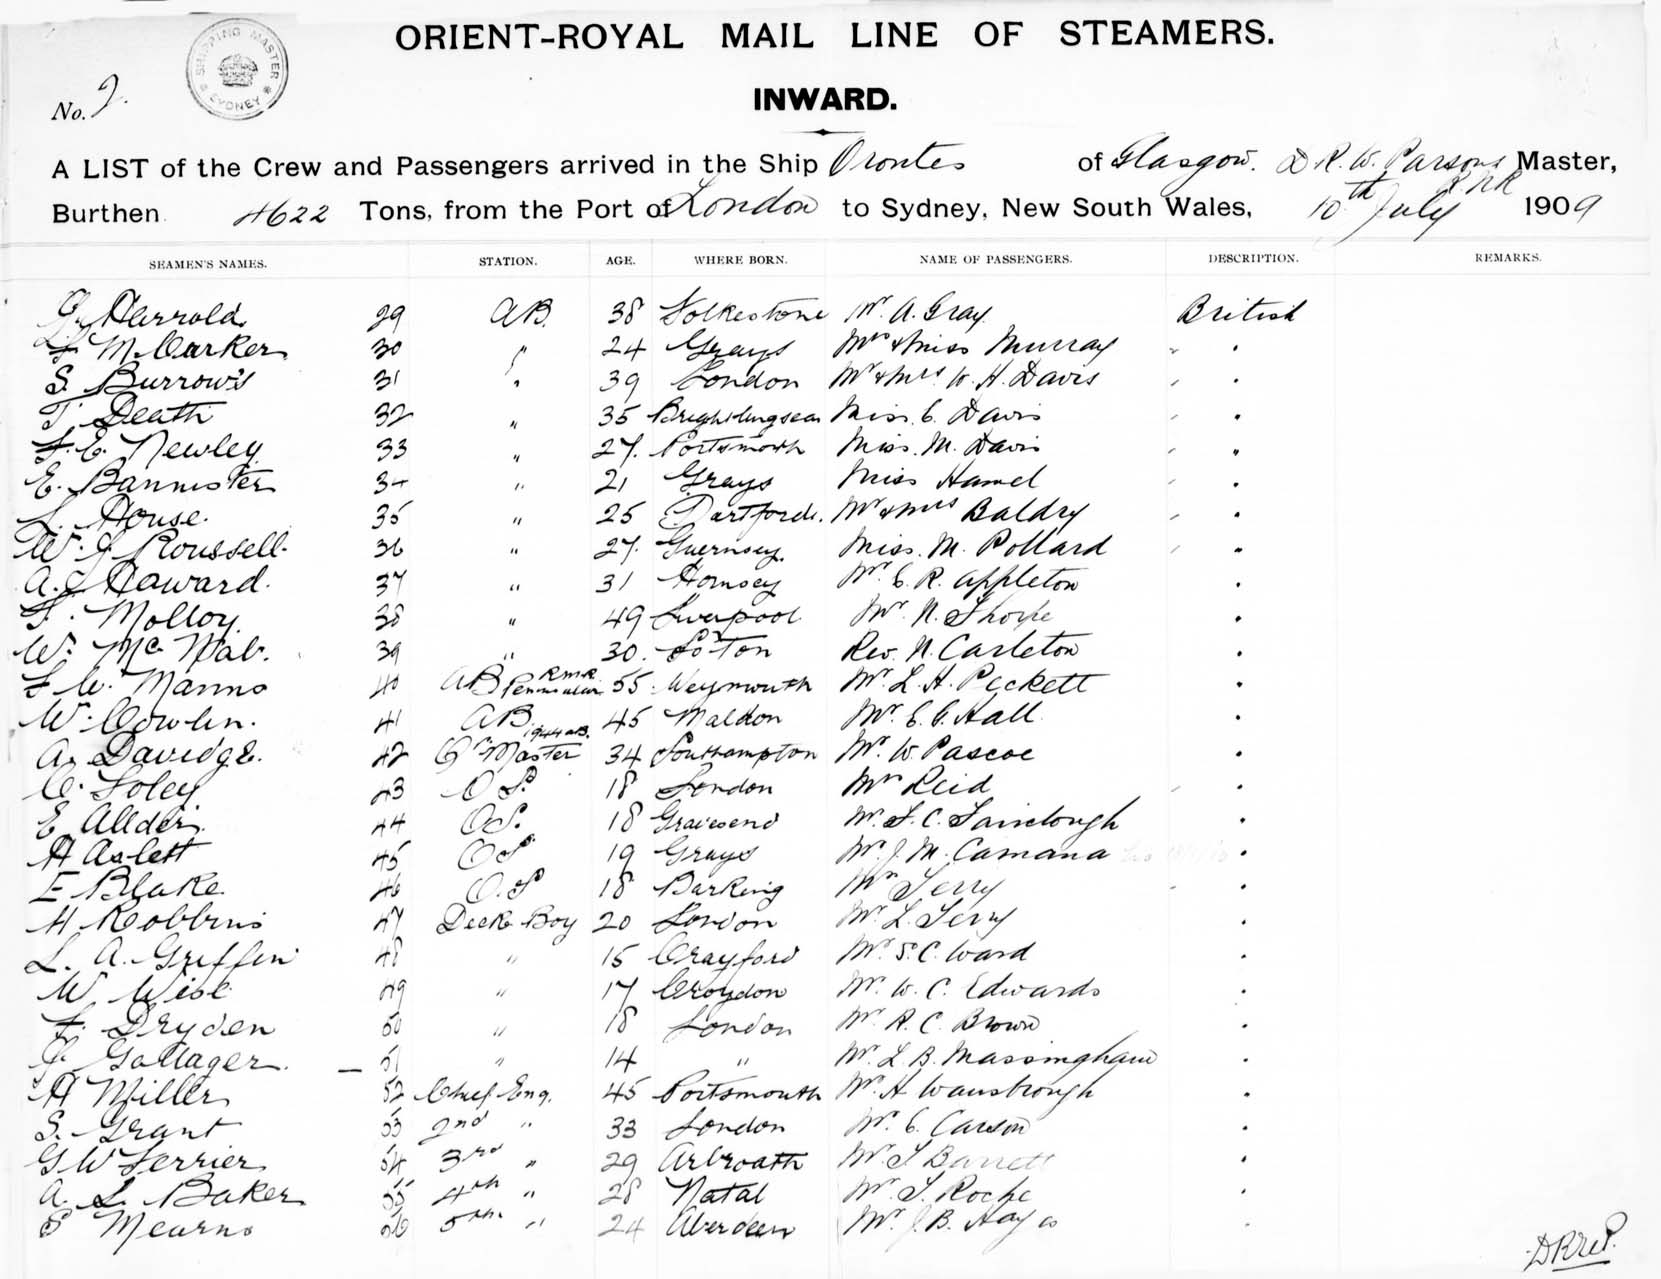 SHIPPING MASTER SYDNEY
ORIENT-ROYAL MAIL LINE OF STEAMERS.
No. 2.
INWARD.
A LIST of the Crew and Passengers arrived in the Ship Orontes of Glasgow. D R. W. Parsons Master,
R.N.R
Burthen 4622 Tons, from the Port of London to Sydney, New South Wales, 10th July 1909
SEAMEN'S NAMES. STATION. AGE. WHERE BORN. NAME OF PASSENGERS. DESCRIPTION. REMARKS.
G. Harrold 29 AB. 38 Folkestone Mr. A. Gray British
M. Carker 30 " 24 Grays Mrs & Miss Murray " "
S. Burrows 31 " 39 London Mr & Mrs W. H. Davis " "
T. Death 32 " 35 Brightlingsea Miss. C. Davis " "
F. C. Newley 33 " 27. Portsmouth Miss. M. Davis " "
E. Bannister 34 " 21 Grays Miss Hamel " "
L. House. 35 " 25 Dartford. Mr & Mrs Baldry " "
W. J. Roussell. 36 " 27. Guernsey. Miss. M. Pollard " "
A. J. Howard. 37 " 31 Hornsey Mr. C. R. Appleton "
F. Molloy. 38 " 49 Liverpool Mr. N. Thorpe "
W. Mc Nab. 39 " 30. So'Ton Rev. N. Carleton "
F. W. Manns 40 AB RMR Peninsular 55 Weymouth Mr. L. H. Peckett "
W. Cowlin. 41 AB. 45 Maldon Mr. C. C. Hall "
A. Davidge. 42 Qr Master 34 Southampton Mr. W. Pascoe "
C. Foley 43 O S. 18 London Mrs Reid " "
E Allder. 44 OS. 18 Gravesend Mr. F. C. Fairclough "
H Aslett 45 OS 19 Grays Mr. J. M. Camana "
E Blake 46 O.S 18 Barking Mrs Terry " "
H Robbins 47 Deck Boy 20 London Mr. L. Terry "
L. A. Griffin 48 " 15 Crayford Mr. S. C. Ward "
W. Wise 49 " 17 Croydon Mr. W. C. Edwards "
F. Dryden 50 " 18 London Mr. R. C. Brown "
J. Gollager. 51 " 14 " Mr. L. B. Massingham "
H Miller 52 Chief Eng. 45 Portsmouth Mr. H Wansbrough "
S. Grant 53 2nd " 33 London Mr. C. Carson "
G W Ferrier 54 3rd " 29 Arbroath Mr. T Barrett "
A. L. Baker 55 4th " 28 Natal Mr. T. Roche "
S Mearns 56 5th. " 24 Aberdeen Mr. J. B. Hayes "